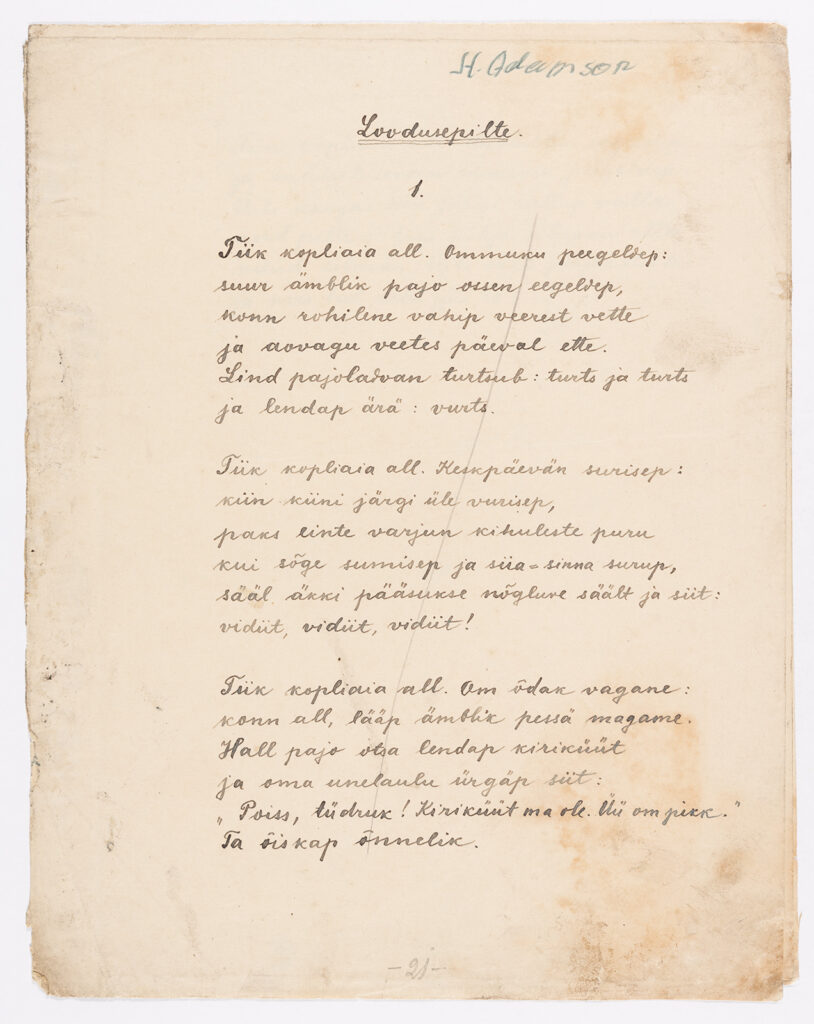 H. Adamson
Loodusepilte.
1.
Tiik kopliaia all. Ommuku peegeldep:
suur ämblik pajo ossen eegeldep,
konn rohilene vahip veerest vette
ja aovagu veetes päeval ette.
Lind pajoladvan turtsub: turts ja turts
ja lendap ärä: vurts.
Tiik kopliaia all. Keskpäevän surisep:
kiin kiini järgi üle vurisep,
paks einte varjun kihuleste puru
kui sõge sumisep ja siia-sinna surup,
sääl äkki pääsukse nõgluve säält ja siit:
vidiit, vidiit, vidiit!
Tiik kopliaia all. Om õdak vagane:
konn all, lääp ämblik pessä magame.
Hall pajo otsa lendap kiriküüt
ja oma unelaulu ürgäp siit:
"Poiss, tüdruk! Kiriküüt ma ole. Üü om pikk."
Ta õiskap õnnelik.
-21-